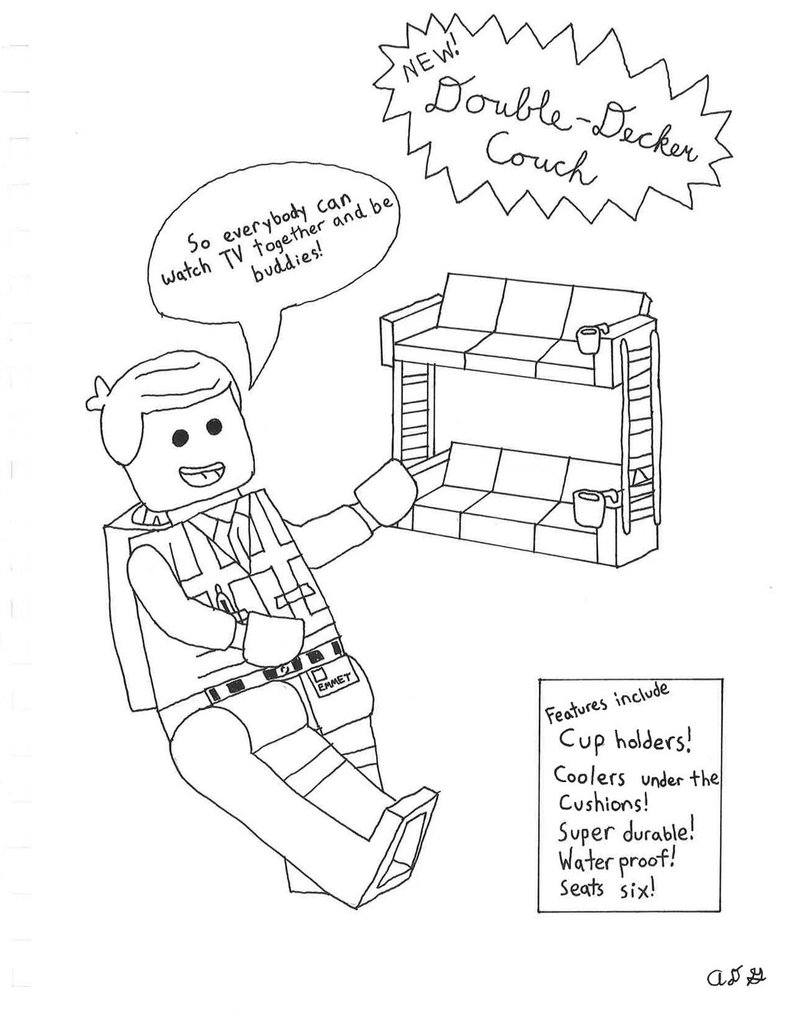 NEW!
Double-Decker
Couch
So everybody can
watch TV together and be
buddies!
EMMET
Features include
Cup holders!
Coolers under the
Cushions!
Super durable!
Water proof!
Seats six!